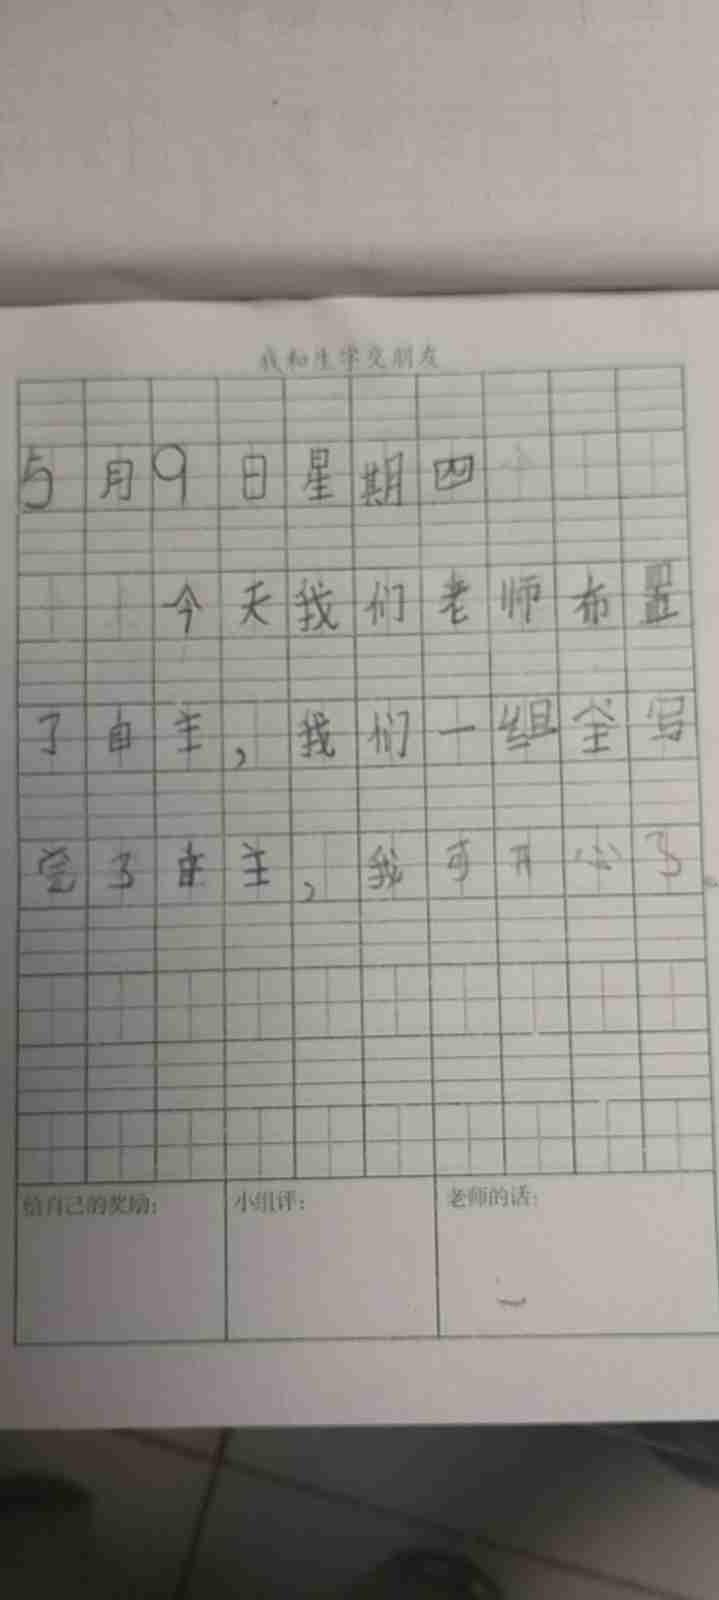 我和生字交朋友
5月9日星期四
今天我们老师布置
了自主，我们一组全写
完了自主，我可开心了
给自己的奖励：
小组评：
老师的话：